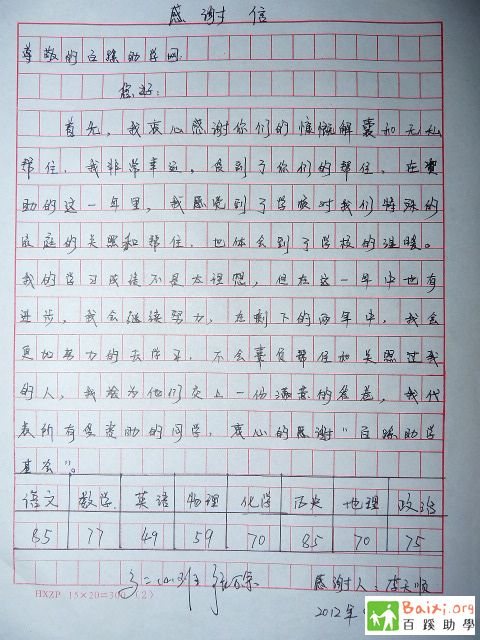 感谢信
尊敬的百蹊助学网:
您好:
首先,我衷心感谢你们的慷慨解囊和无私
帮住,我非常幸运,受到了你们的帮住,在资
助的这一年里,我感觉到了学校对我们特殊的
家庭的关照和帮住,也体会到了学校的温暖。
我的学习成绩不是太理想,但在这一年中也有
进步,我会继续努力,在剩下的两年中,我会
更加努力的去学习,不会辜负帮住和关照过我
的人,我会为他们交上一份满意的答卷,我代
表所有受资助的同学,衷心的感谢“百蹊助学
基金”。
语文 数学 英语 物理 化学 历史 地理 政治
85 77 49 59 70 85 70 75
感谢人:李天顺
HXZP 15×20=300 (2)
2012年
Baixi.org
百蹊助學